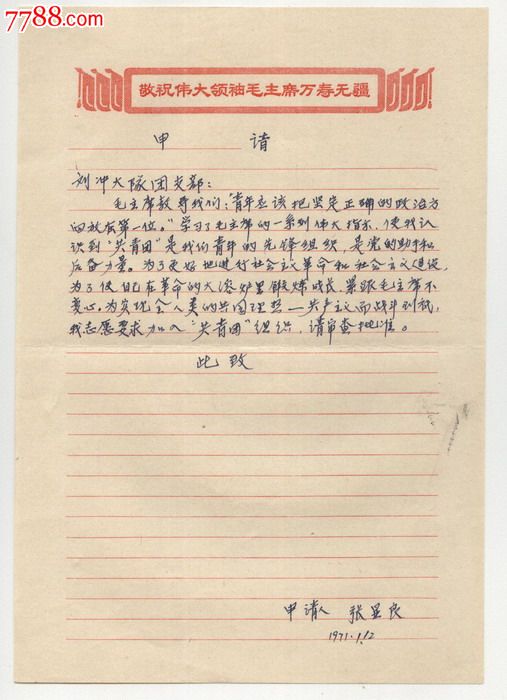 7788.com
敬祝伟大领袖毛主席万寿无疆
申 请
刘冲大队团支部：
毛主席教导我们：“青年应该把坚定正确的政治方
向放在第一位。”学习了毛主席的一系列伟大指示，使我认
识到“共青团”是我们青年的先锋组织，是党的助手和
后备力量。为了更好地进行社会主义革命和社会主义建设，
为了使自己在革命的大熔炉里锻炼成长，紧跟毛主席不
变心，为实现全人类的共同理想—共产主义而战斗到底，
我志愿要求加入“共青团”组织，请审查批准。
此致
申请人 张显良
1971.1.12